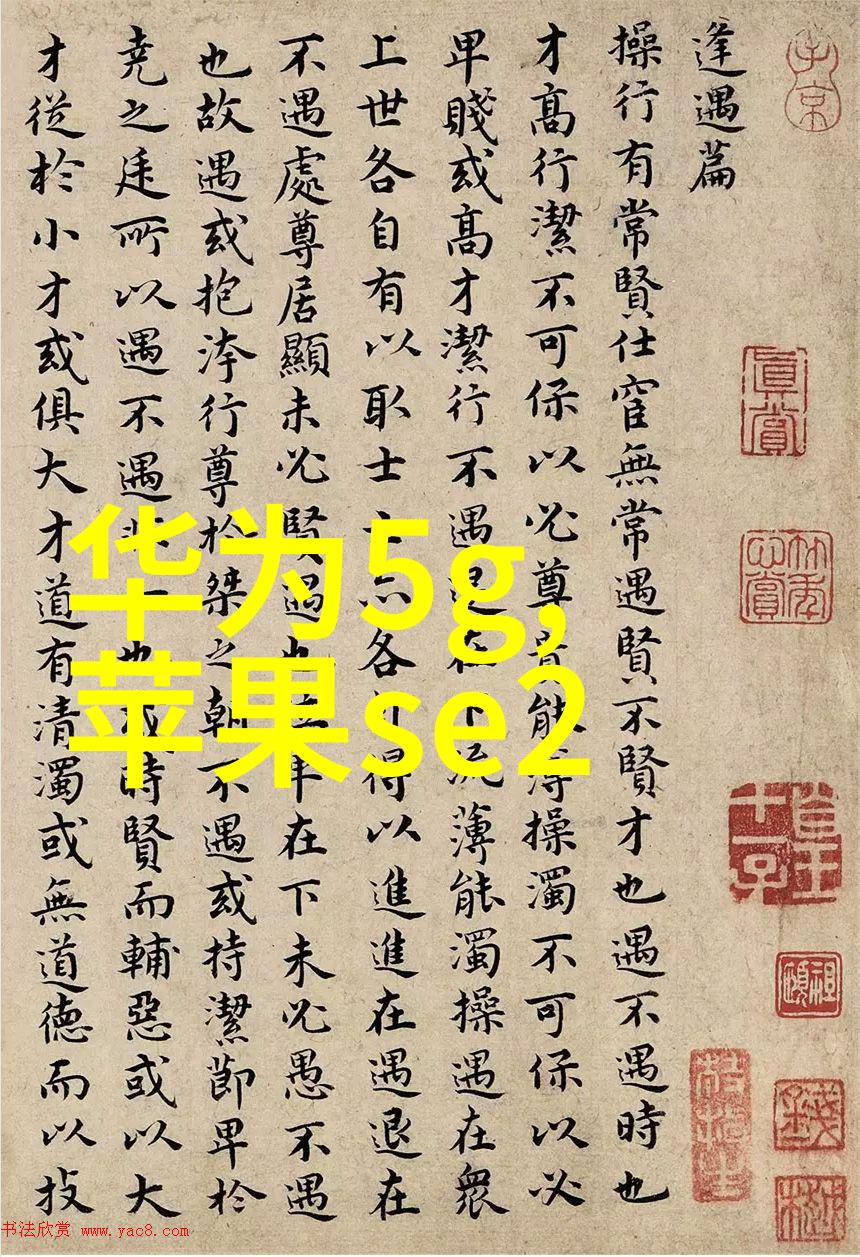 逢遇篇
操行有常賢仕宦無常遇賢不賢才也遇不遇時也
才高行潔不可保以必尊貴能薄操濁不可保以必
卑賤或高才潔行不遇退在下流薄能濁操遇在衆
上世各自有以取士士亦各自得以進進在遇退在
不遇處尊居顯未必賢遇也位卑在下未必愚不遇
也故遇或抱洿行尊於桀之朝不遇或持潔節卑於
堯之廷所以遇不遇非一也或時賢而輔惡或以大
才從於小才或俱大才道有清濁或無道德而以技
子京
眞賞
华为5g,
苹果se2
书法欣赏 www.yac8.com